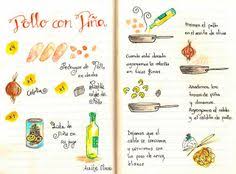 Pollo con Piña
Pechugas de Pollo
en dados
Cebolla
Lata de
Piña en
su jugo
Aceite Oliva
Doramos el pollo
en el aceite de oliva
Cuando esté dorado
agregamos la cebolla
en tiras finas
Añadimos
piña
y doramos.
Agregamos el caldo
Dejamos que el
caldo se consuma
y servimos con
un poco de arroz
blanco